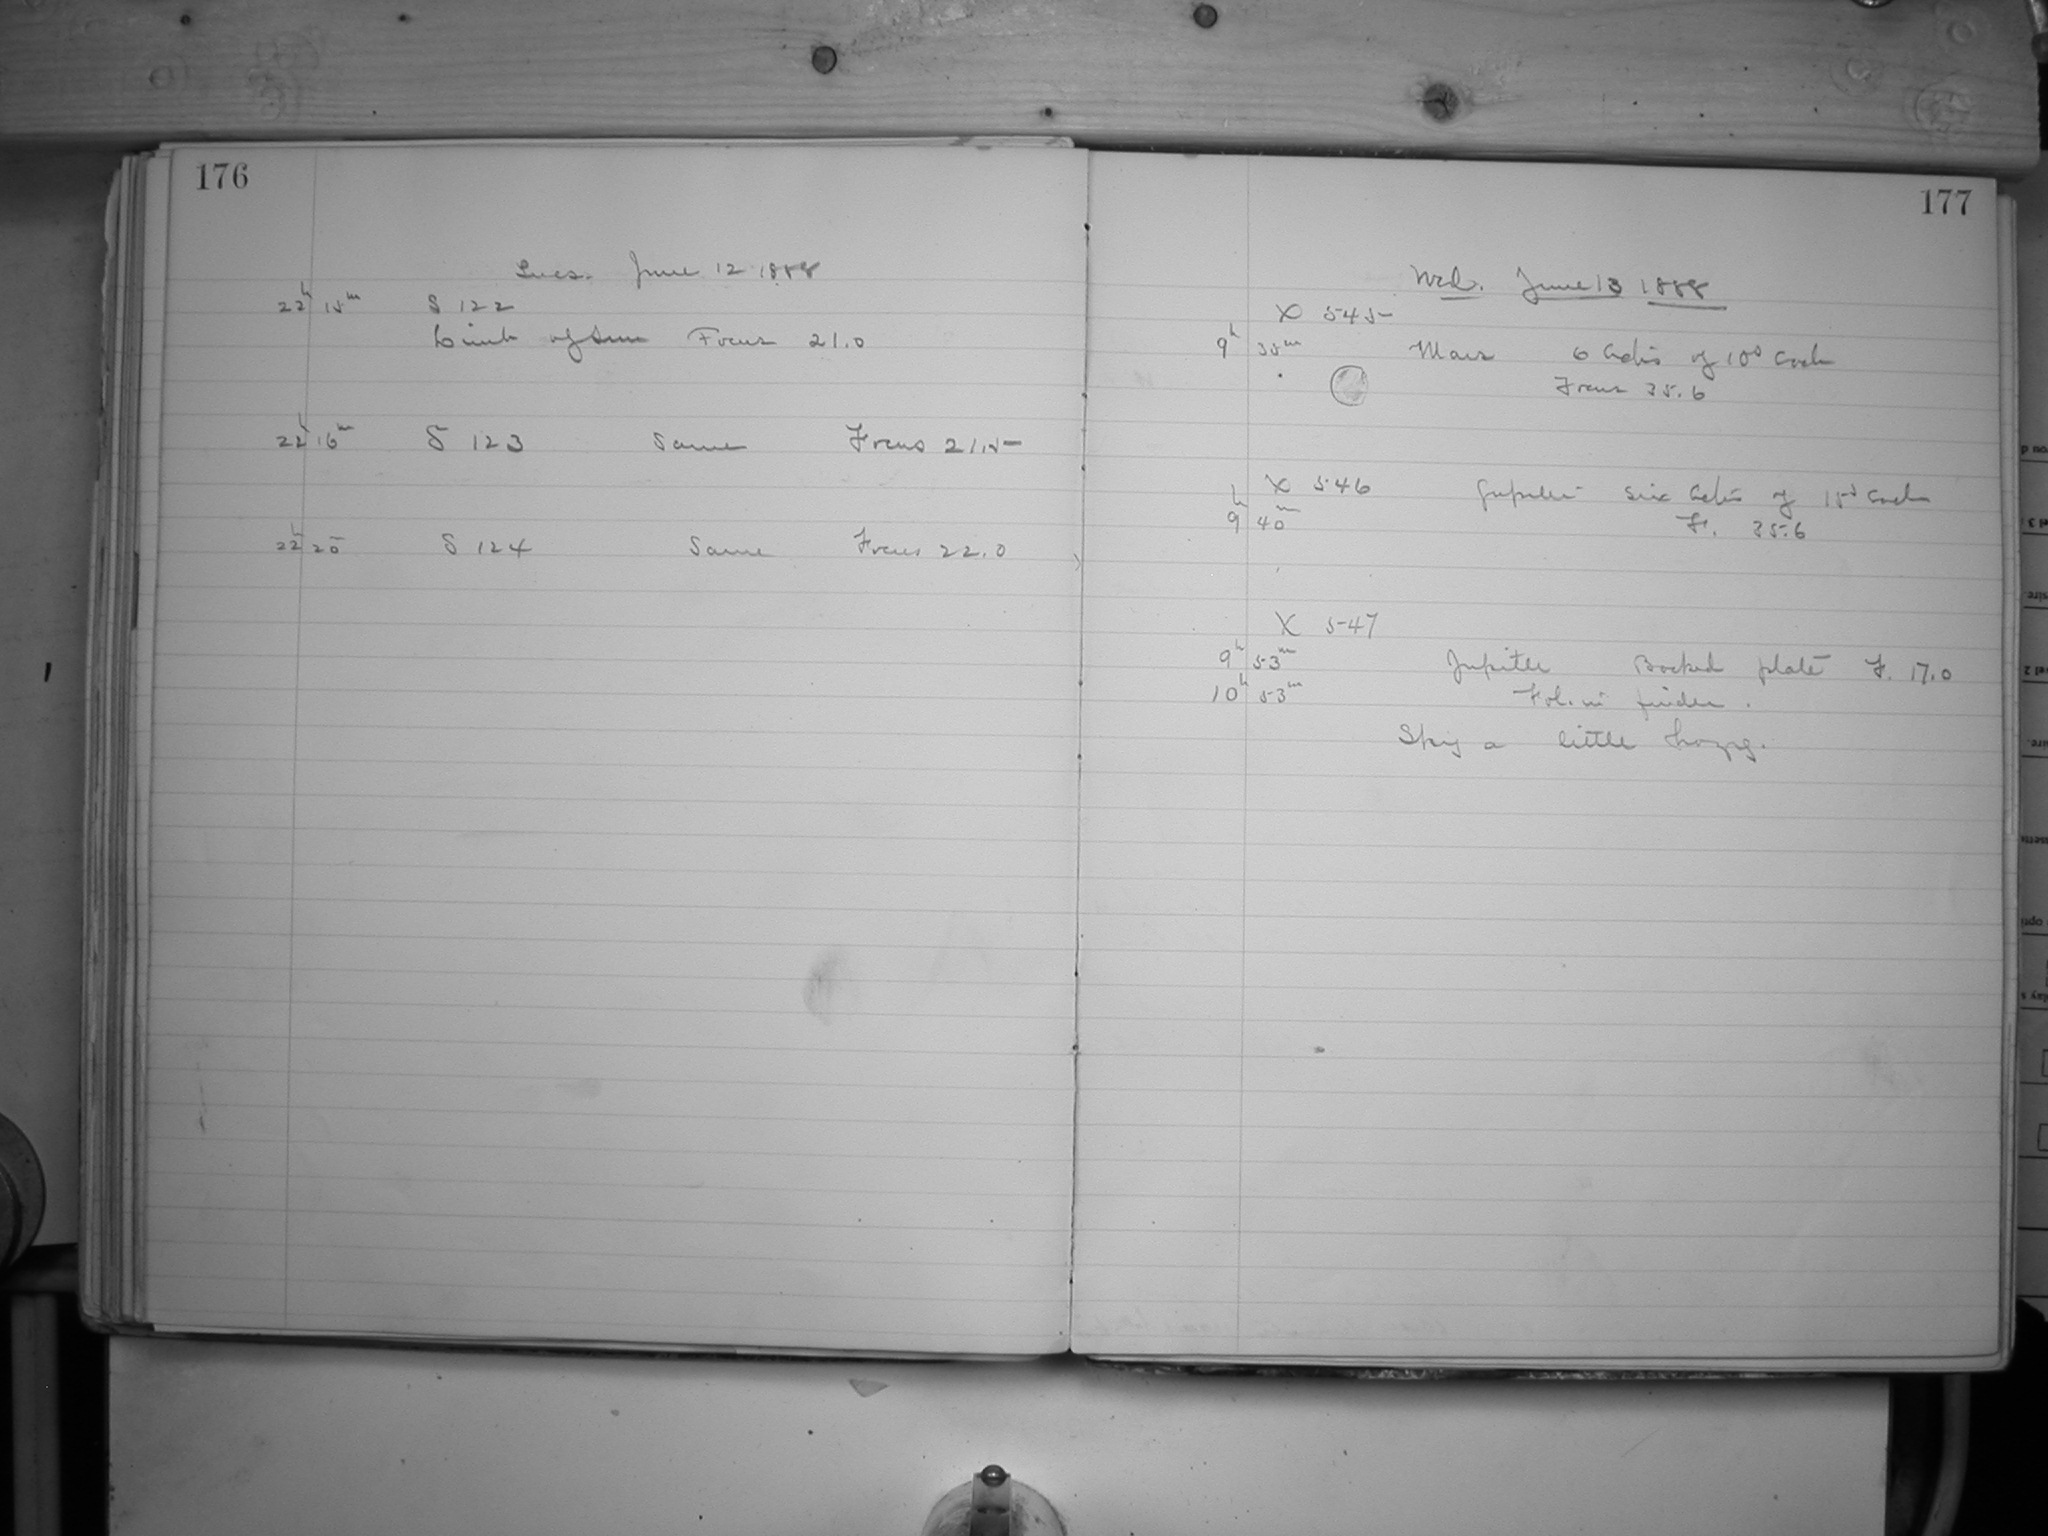 176
Tues. June 12 1888
22h 15m S 122
Limb of Sun Focus 21.0
22h 16m S 123 Same Focus 21.5
22h 20 S 124 Same Focus 22.0
177
Wed. June 13 1888
X 545
9h 35m Mars 6 of 10s each
Focus 35.6
X 546 Jupiter six of 15s each
9h 40m F. 35.6
X 547
9h 53m Jupiter Backed plate F. 17.0
10h 53m Fol. in finder.
Sky a little hazy.